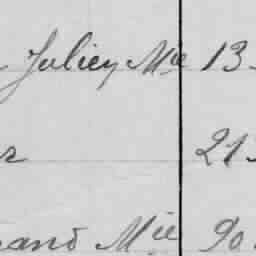 Juliey Mie 13
r 21
rand Mie 90